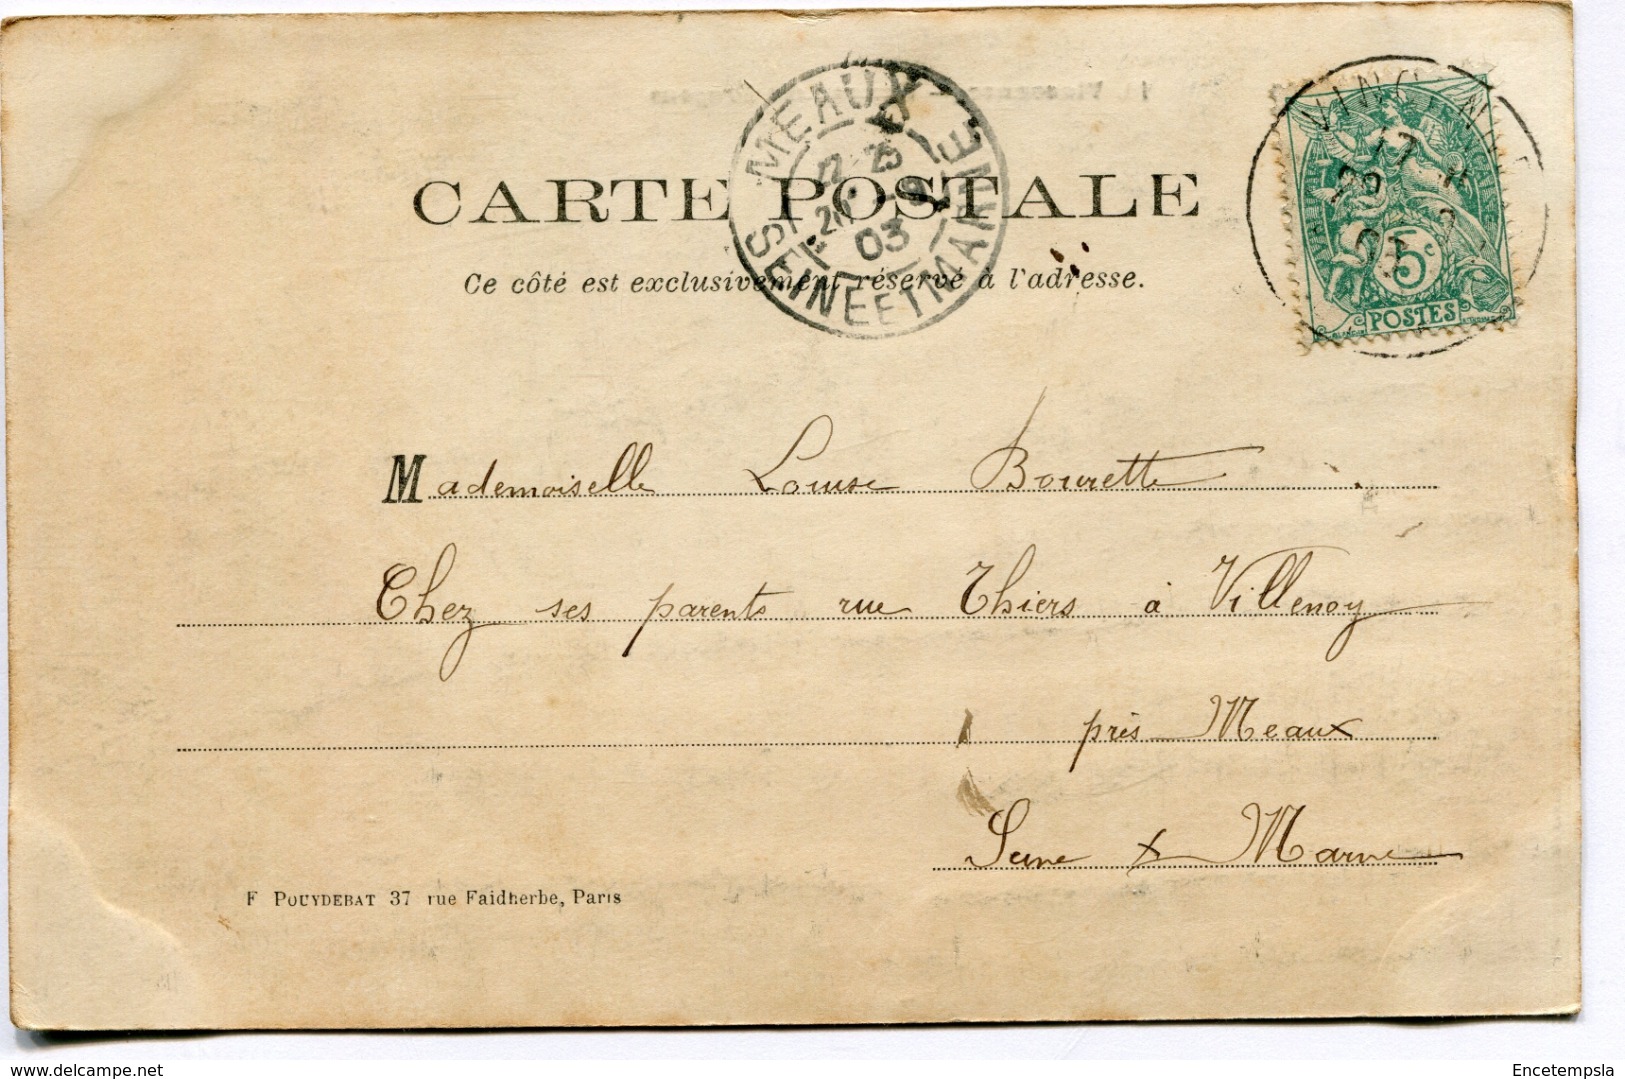 MEAUX
SEINE ET MARNE
12 25
26
03
VINCENNES
17
03
5c
POSTES
CARTE POSTALE
Ce côté est exclusivement réservé à l'adresse.
Mademoiselle Louise Bourrette
Chez ses parents rue Thiers à Villenoy
près Meaux
Seine & Marne
F POUYDEBAT 37 rue Faidherbe, Paris
www.delcampe.net
Encetempsla